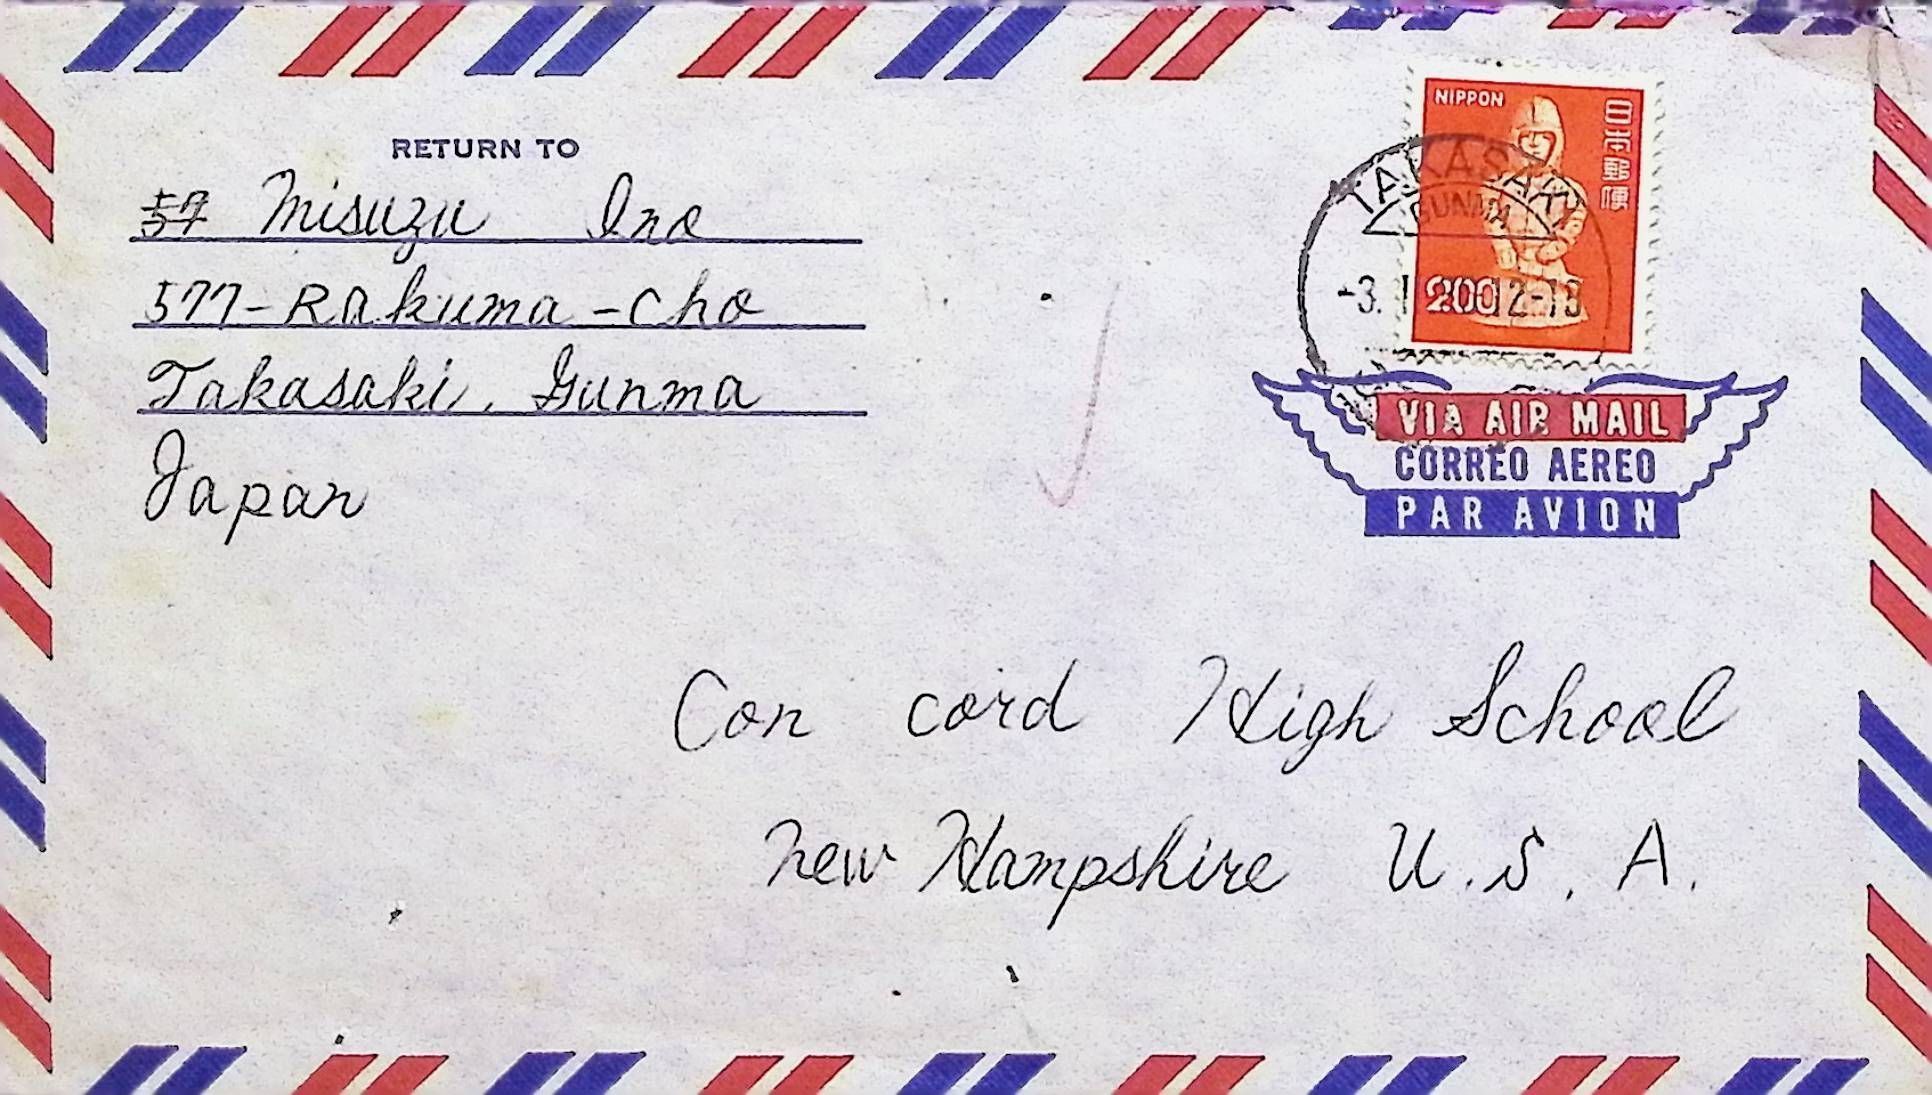 RETURN TO
57 Misuzu Ino
577-Rakuma-cho
Takasaki, Gunma
Japan
NIPPON
日本郵便
TAKASAKI
GUNMA
200
VIA AIR MAIL
CORREO AEREO
PAR AVION
Con cord High School
New Hampshire U.S.A.